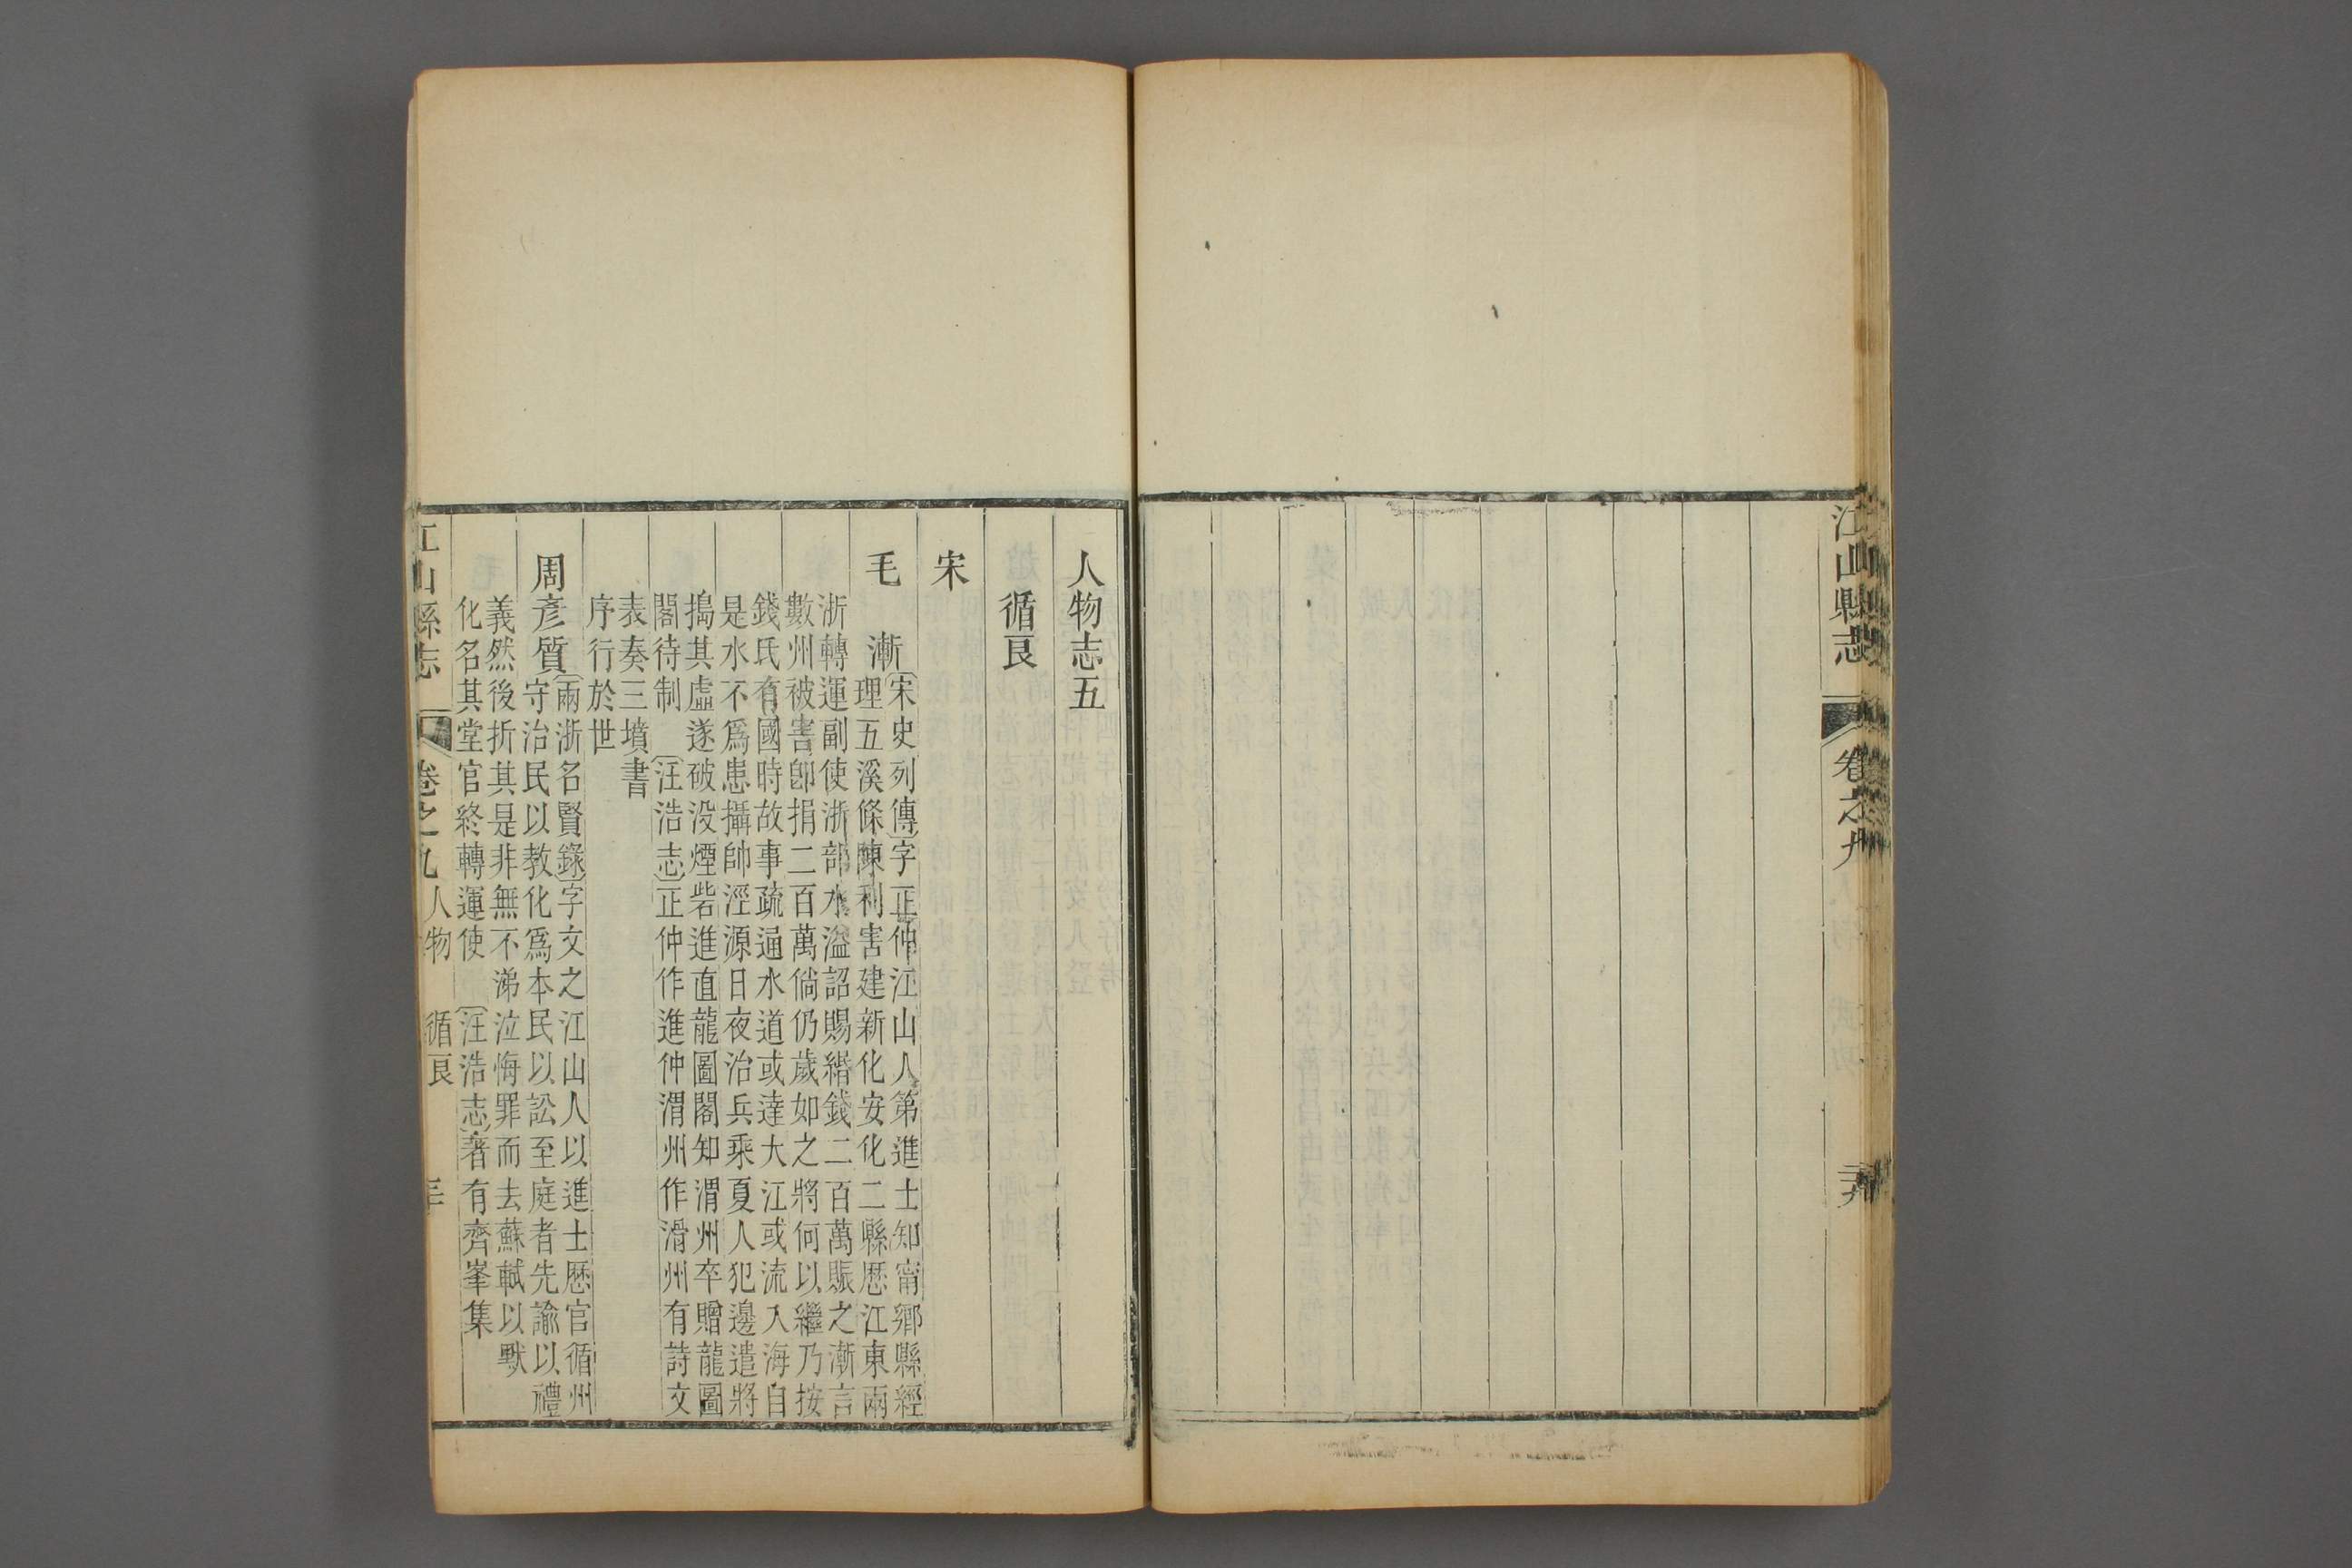 江山縣志
卷之九
三十九
人物志五
循良
宋
毛 漸
宋史列傳字正仲江山人第進士知甯鄉縣經
理五溪條陳利害建新化安化二縣歷江東兩
浙轉運副使浙部水溢詔賜緡錢二百萬賑之漸言
數州被害卽捐二百萬倘仍歲如之將何以繼乃按
錢氏有國時故事疏通水道或達大江或流入海自
是水不爲患攝帥涇源日夜治兵乘夏人犯邊遣將
搗其虛遂破没煙砦進直龍圖閣知渭州卒贈龍圖
閣待制 汪浩志正仲作進仲渭州作滑州有詩文
表奏三墳書
序行於世
周彥質
兩浙名賢錄字文之江山人以進士歷官循州
守治民以教化爲本民以訟至庭者先諭以禮
義然後折其是非無不涕泣悔罪而去蘇軾以默
化名其堂官終轉運使 汪浩志著有齊峯集
江山縣志
卷之九人物 循良